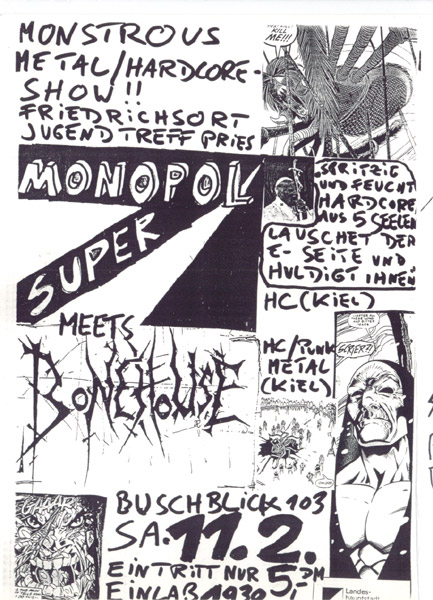 MONSTROUS
METAL/HARDCORE-
SHOW!!
FRIEDRICHSORT
JUGENDTREFF PRIES
KILL
ME!!!
MONOPOL
SUPER
SPRITZIG
UND FEUCHT
HARDCORE
AUS 5 SEELEN
LAUSCHET DER
E-SEITE UND
HULDIGT IHNEN
HC (KIEL)
MEETS
BONEHOUSE
HC/PUNK
METAL
(KIEL)
GAAAR
BUSCHBLICK 103
SA. 11.2.
EINTRITT NUR 5,- DM
EINLAß 1930
Landes-
hauptstadt